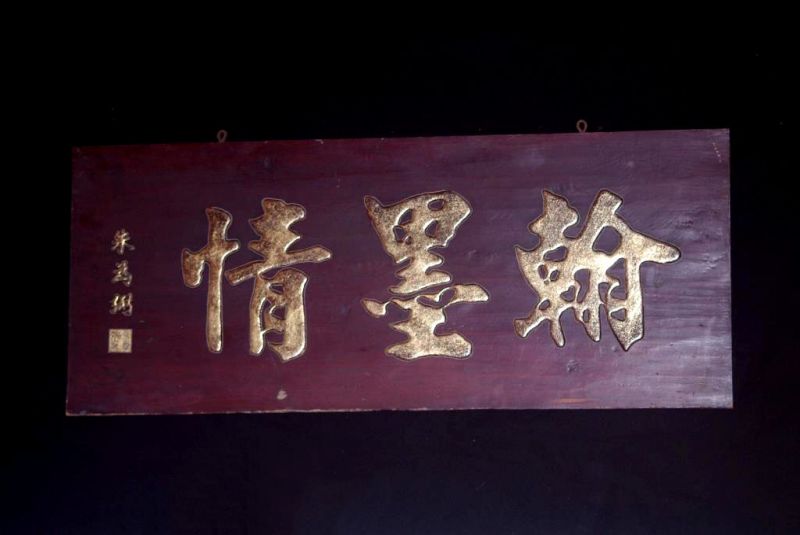 翰墨情
朱為弼